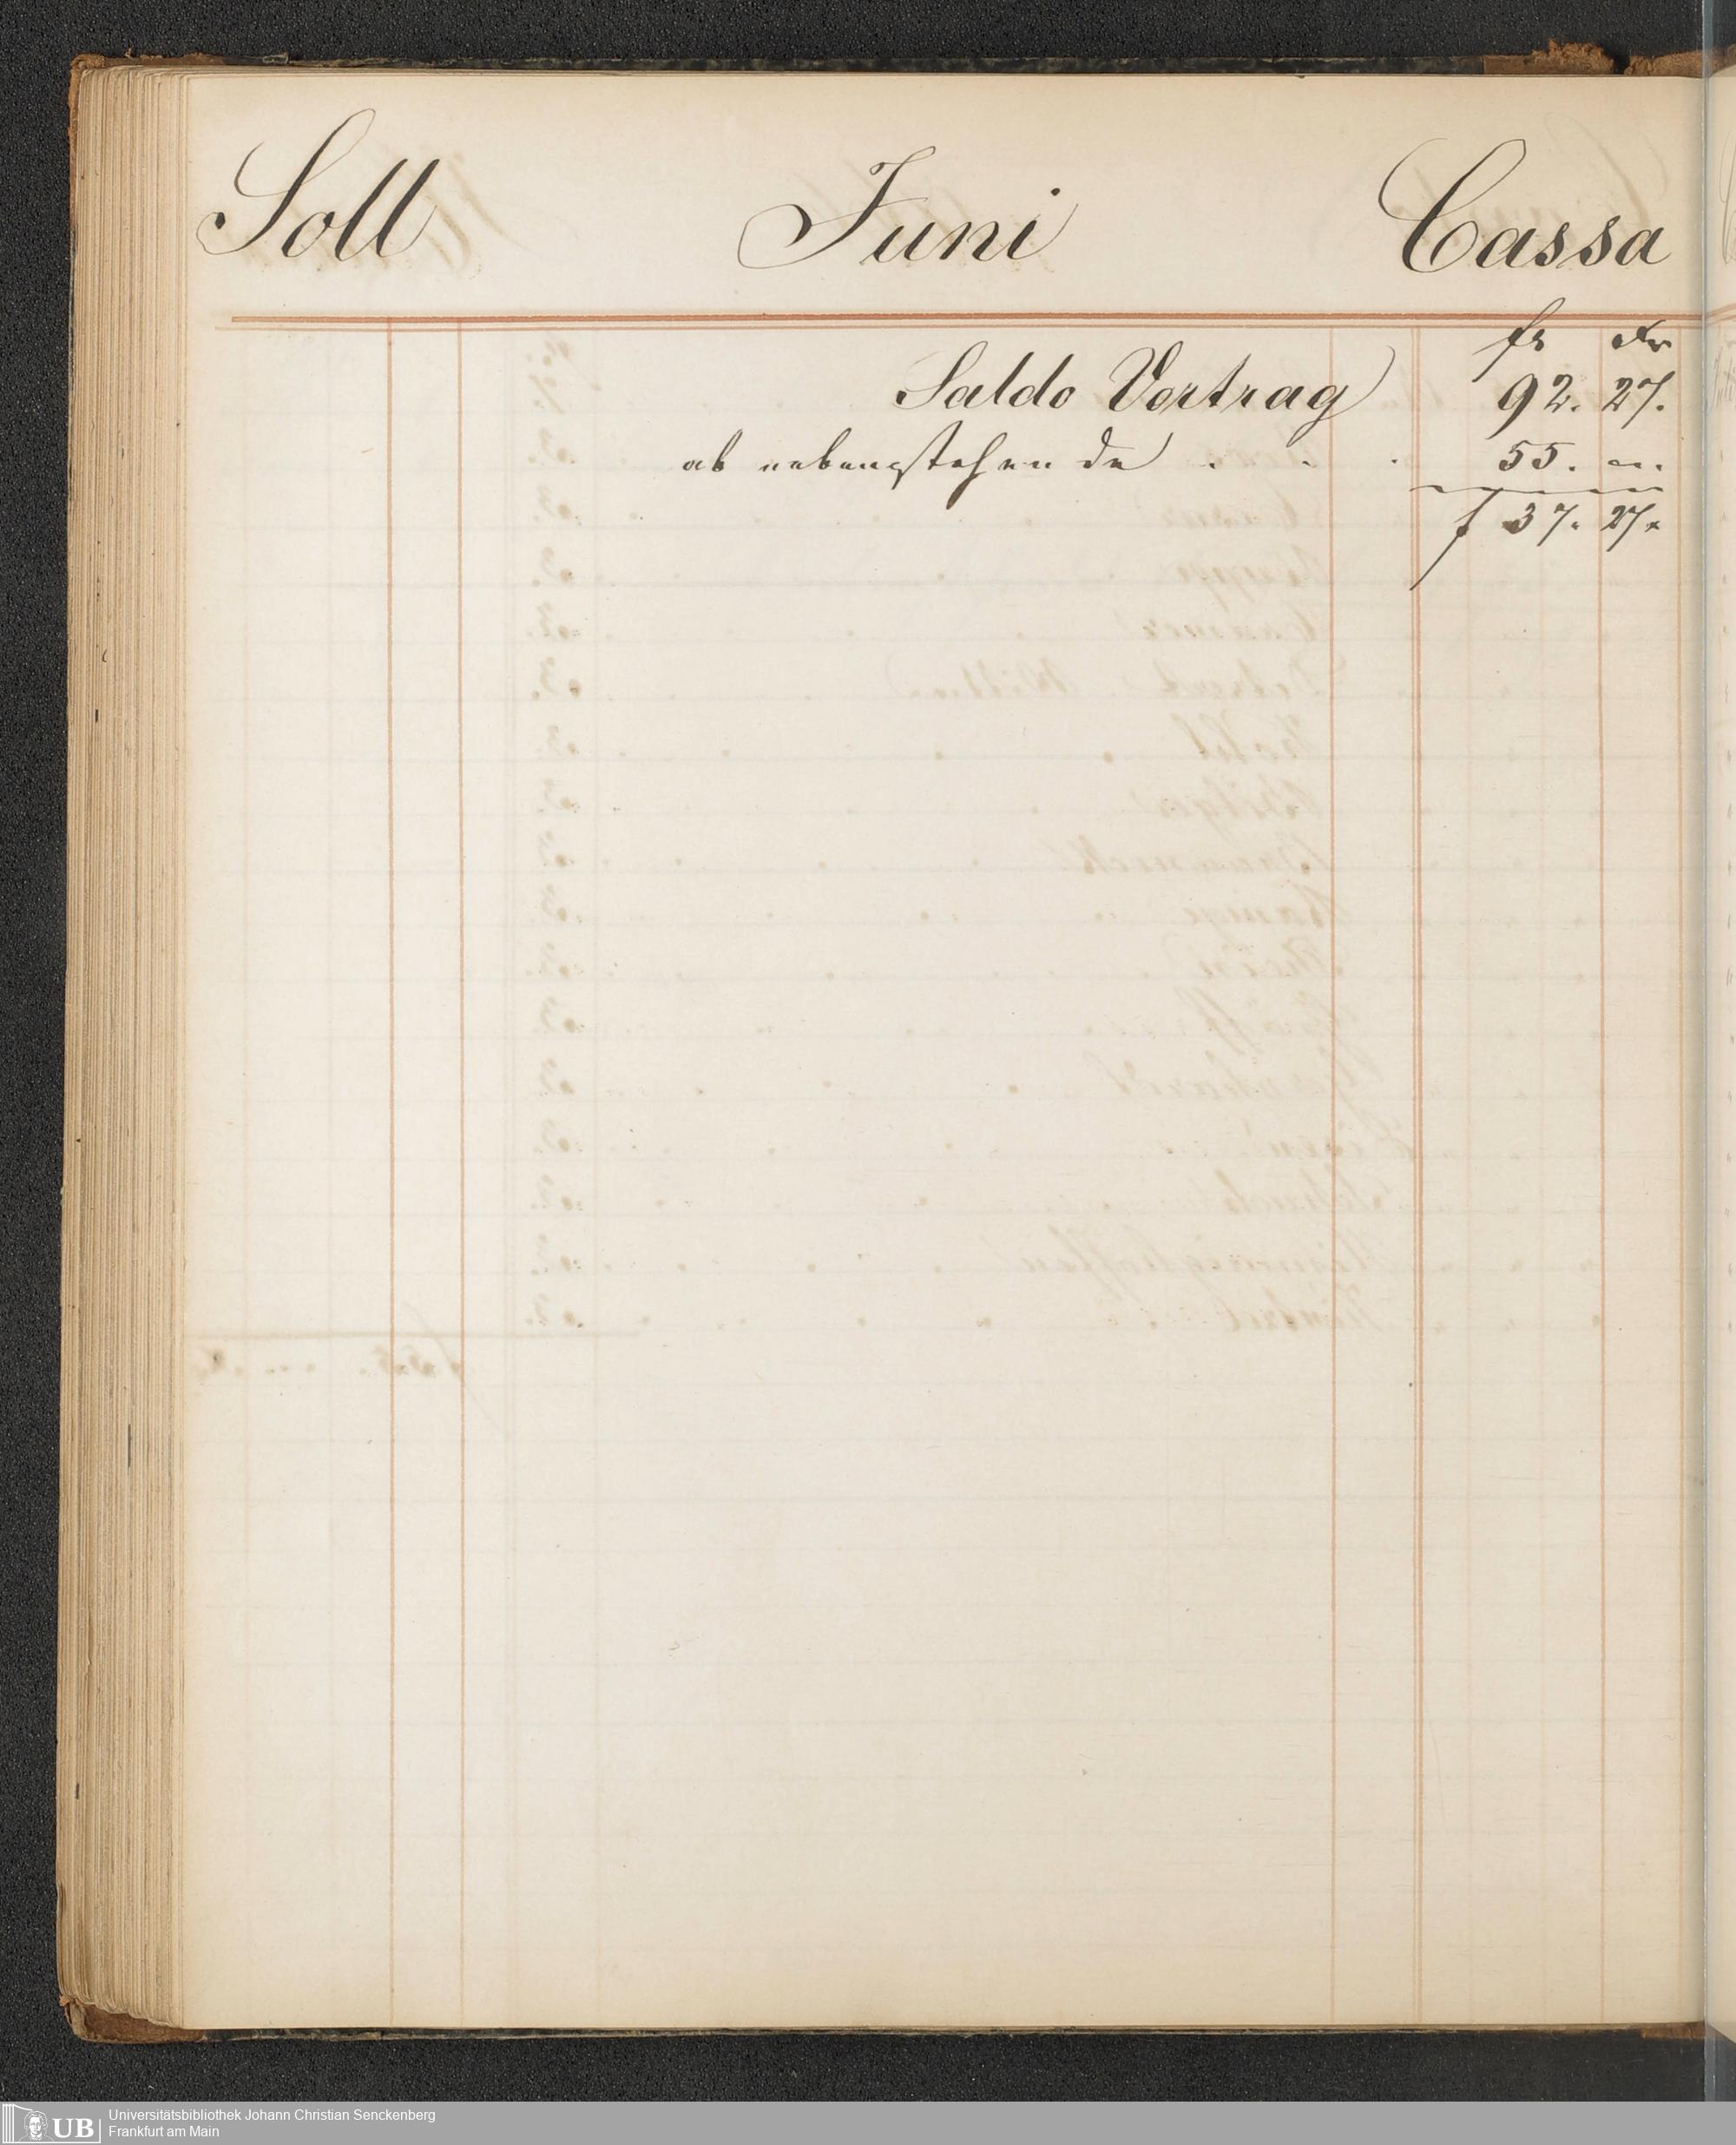 Soll Juni Cassa
fr Xr
Saldo Vortrag 92. 27.
ab nebenstehende . . . 55. ".
f 37. 27.
UB
Universitätsbibliothek Johann Christian Senckenberg
Frankfurt am Main